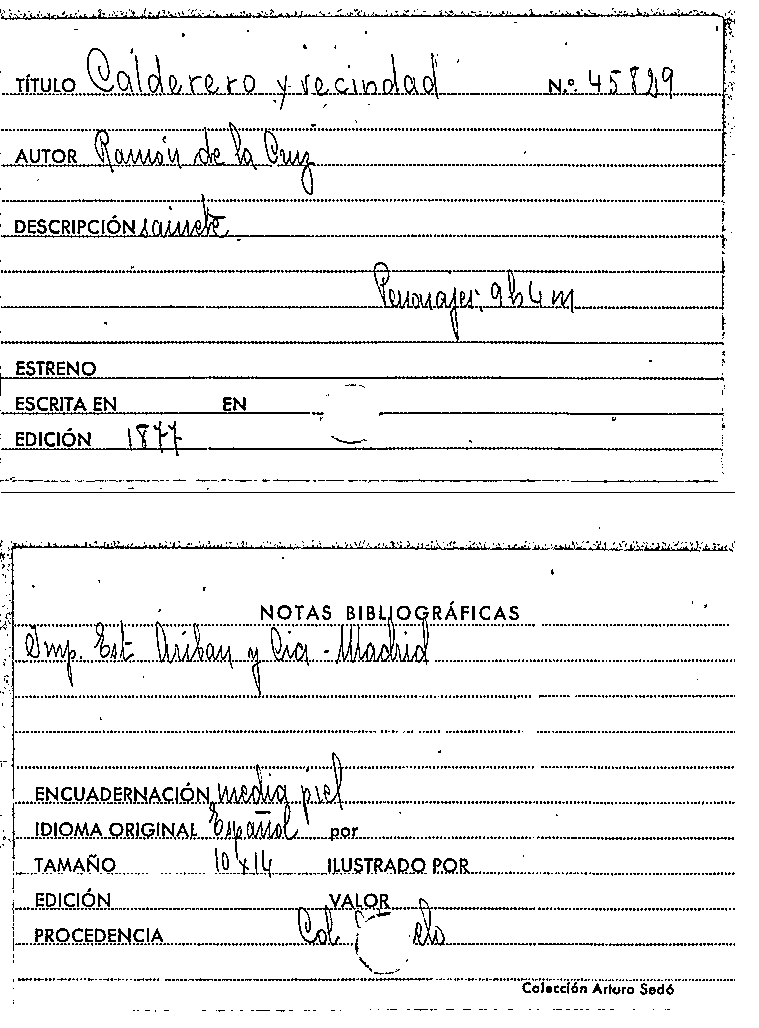 TÍTULO Calderero y vecindad N.º 45829
AUTOR Ramón de la Cruz
DESCRIPCIÓN sainete
Personajes, 9 h 4 m
ESTRENO
ESCRITA EN EN
EDICIÓN 1877
NOTAS BIBLIOGRÁFICAS
Imp. Est. Aribau y Cia - Madrid
ENCUADERNACIÓN media piel
IDIOMA ORIGINAL Español por
TAMAÑO 10 x 14 ILUSTRADO POR
EDICIÓN VALOR
PROCEDENCIA Col
Colección Arturo Sedó